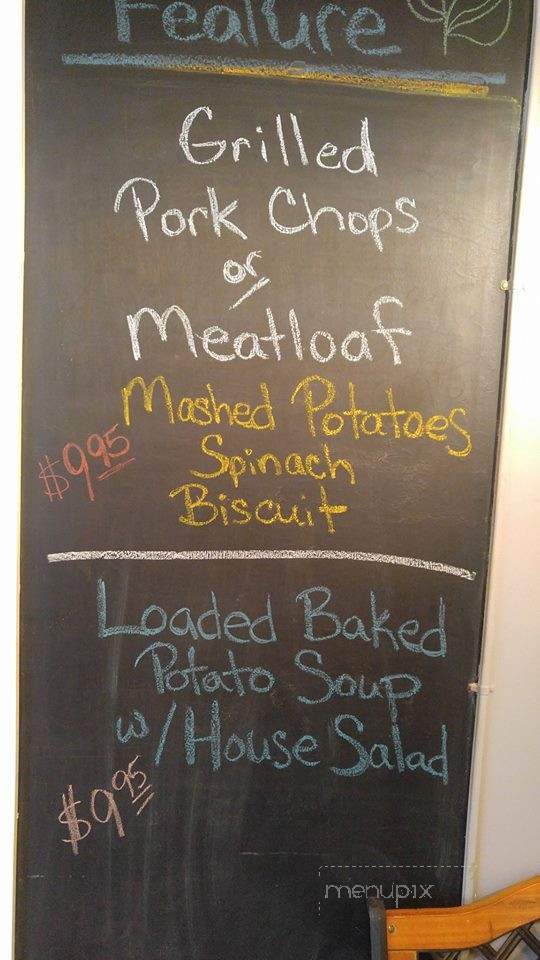 Feature
Grilled
Pork Chops
or
Meatloaf
Mashed Potatoes
$9.95
Spinach
Biscuit
Loaded Baked
Potato Soup
w/House Salad
$9.95
menupix